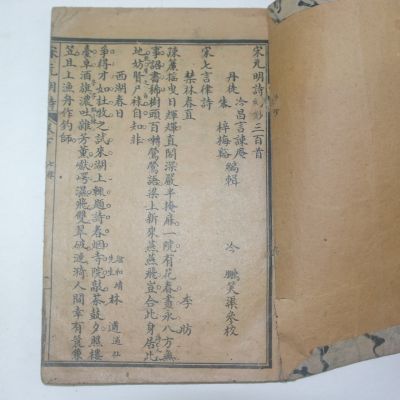 宋元明詩三百首
丹徒 冷昌言諫庵 編輯
朱梓梅谿
冷鵬笑渠參校
宋七言律詩
禁林春直 李昉
疎簾搖曳日輝輝直閣深嚴半掩扉一院有花春晝永八方無
事詔書稀樹頭百囀鶯鶯語梁上新來燕燕飛豈合此身居此
地妨賢尸祿自知非
西湖春日 林逋
諡和靖先生
爭得才如杜牧之試來湖上輒題詩春煙寺院敲茶鼓夕照樓
臺卓酒旗濃吐雜芳薰巘崿濕飛雙翠破漣漪人間幸有蓑兼
笠且上漁舟作釣師
宋元明詩
七律